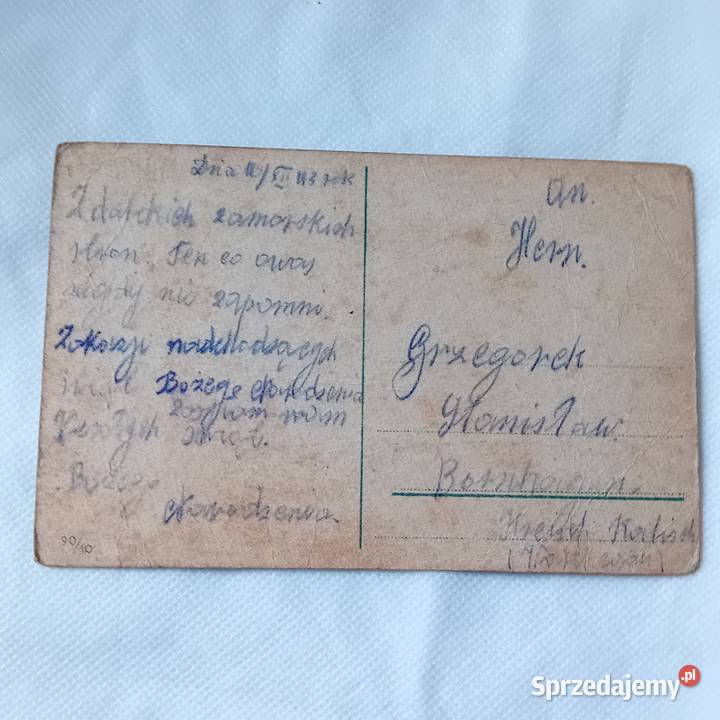 Dnia 11/XII 43 rok
Z dalekich zamorskich
stron. Ten co o was
nigdy nie zapomni.
Z okazji nadchodzących
świąt Bożego Narodzenia
Zasyłam wam
Wesołych Świąt.
Bożego
Narodzenia.
90/10
An.
Hern.
Grzegorek
Stanisław.
Kreisch Kalisch
Sprzedajemy.pl